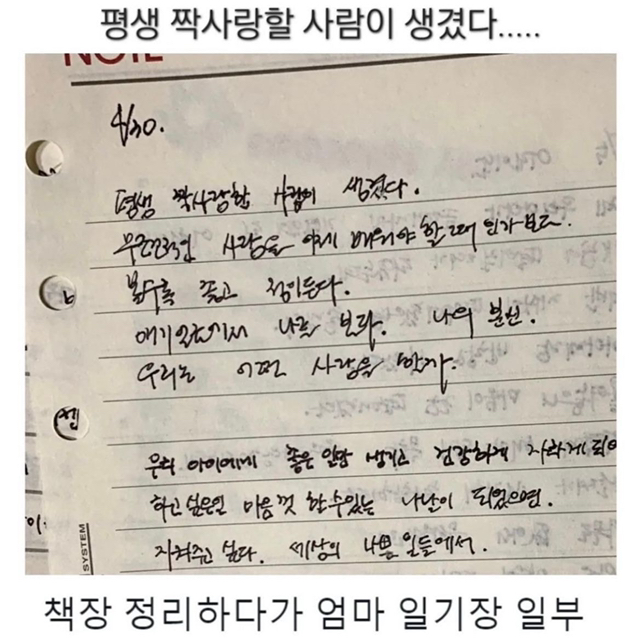 평생 짝사랑할 사람이 생겼다.....
4/30.
평생 짝사랑할 사람이 생겼다.
사랑을 이제 배워야 할 때 인가보다.
볼수록 좋고 정이든다.
애기 나를 보다. 나의 분신.
우리는 어떤 사랑을 할까.
우리 아이에게 좋은 일만 생기고 건강하게
하고 싶은일 마음껏 할수있는 나날이 되었으면.
지켜주고 싶다. 세상의 나쁜 일들에서.
SYSTEM
책장 정리하다가 엄마 일기장 일부